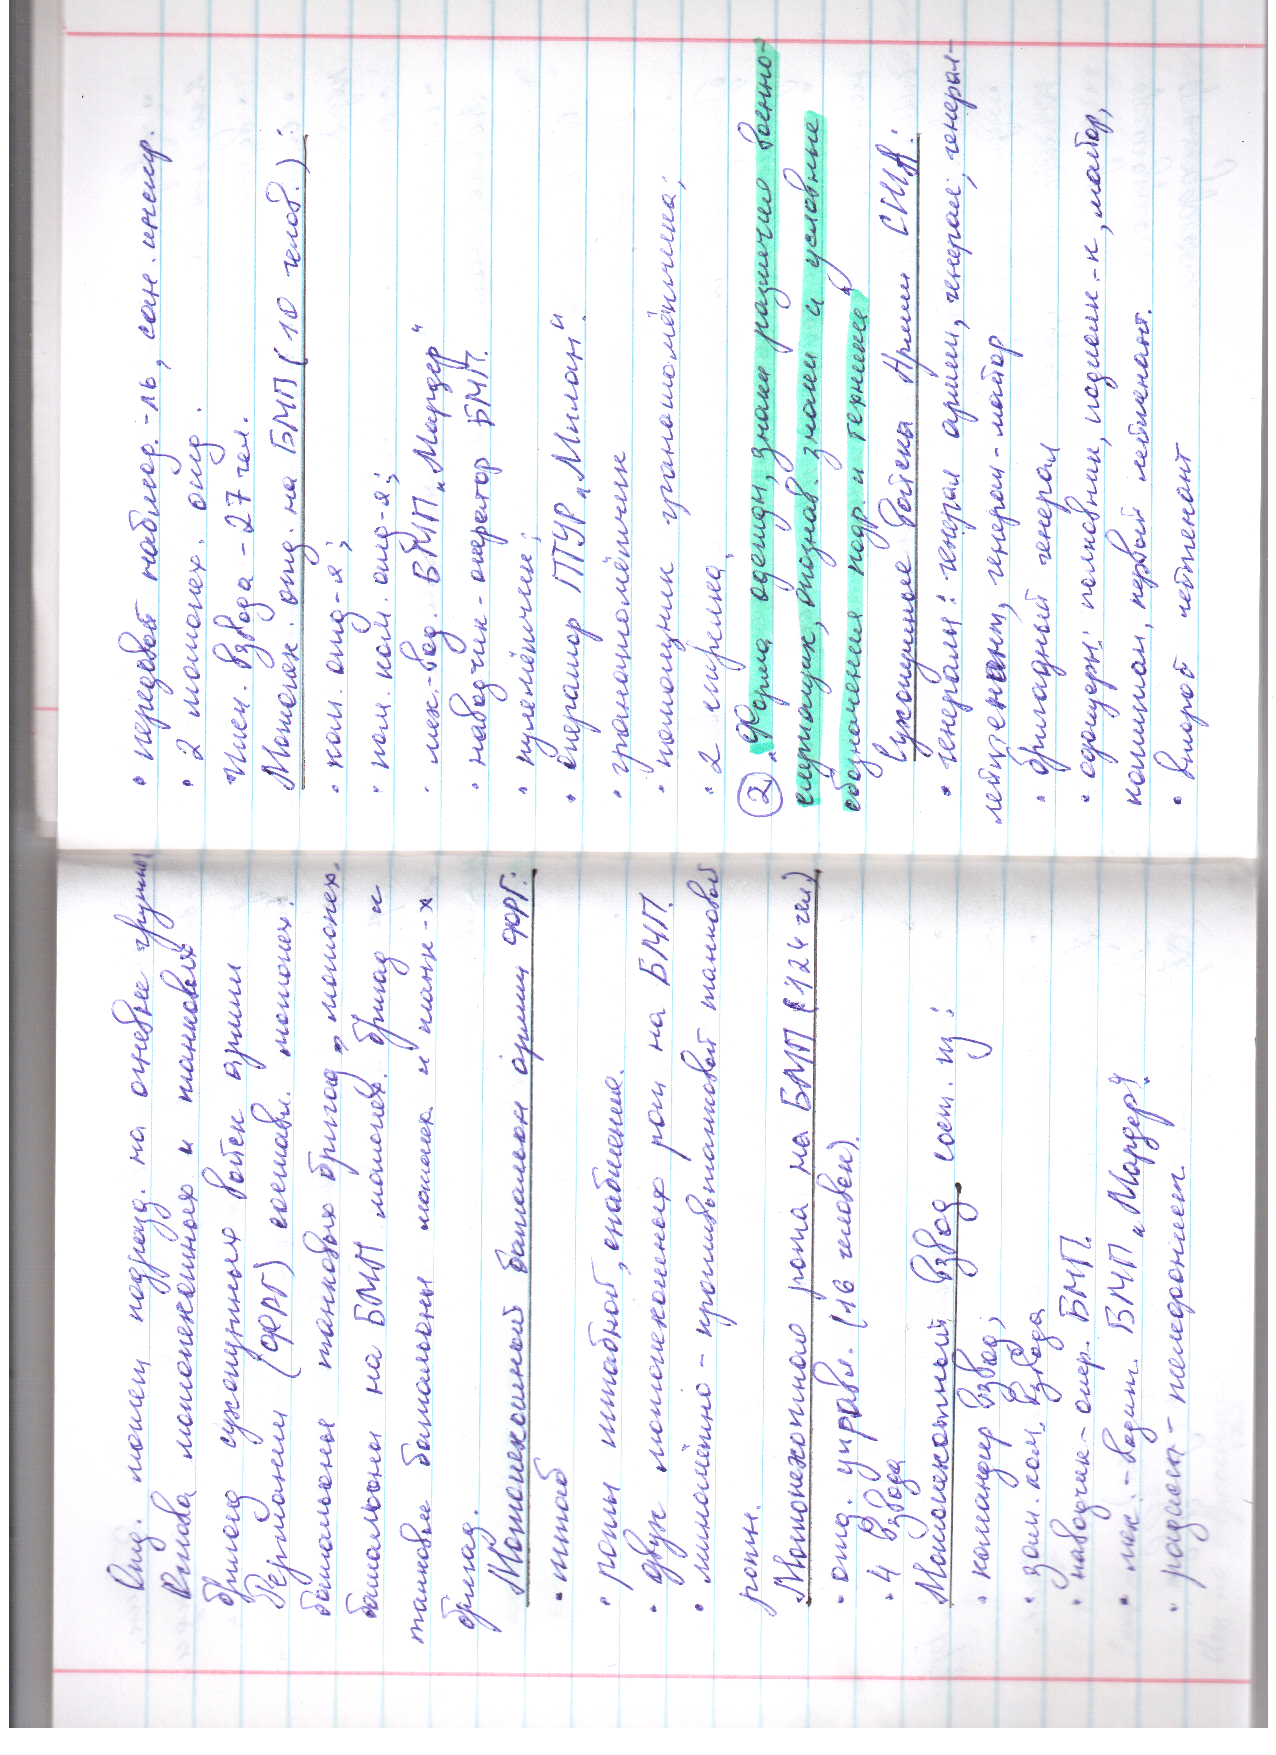 Отд. может подразд. на огневые группы
Основа мотопехотных и танковых
бригад сухопутных войск армии
Германии (ФРГ) составл. мотопех.
батальоны танковых бригад, мотопех.
батальоны на БМП мотопех. бригад и
танковые батальоны мотопех и танк-х
бригад.
Мотопехотный батальон армии ФРГ:
• штаб
• роты штабной, снабжения.
• двух мотопехотных рот на БМП.
• миномётно - противотанковой танковой
роты.
Мотопехотная рота на БМП (124 чел)
• отд. управл. (16 человек).
• 4 взвода
Мотопехотный взвод сост. из:
• командир взвод;
• зам. ком. взвода
• наводчик - опер. БМП.
• мех. - водит. БМП „Мардер".
• радист - телефонист.
• передовой наблюд-ль, сан. инстр.
• 2 мотопех. отд.
Числ. взвода - 27 чел.
Мотопех. отд. на БМП (10 челов.):
• ком. отд-я;
• пом. ком. отд-я;
• мех-вод. БМП „Мардер"
• наводчик - оператор БМП.
• пулемётчик;
• оператор ПТУР „Милан".
• гранатомётчик
• помощник гранатомётчика;
• 2 стрелка;
② „Форма одежды, знаки различия военно-
служащих, опознав. знаки и условные
обозначения подр. и техники"
Сухопутные войска Армии США:
• генералы: генерал армии, генерал, генерал-
лейтенант, генерал-майор
• бригадный генерал
• офицеры: полковник, подполк-к, майор,
капитан, первый лейтенант.
• второй лейтенант